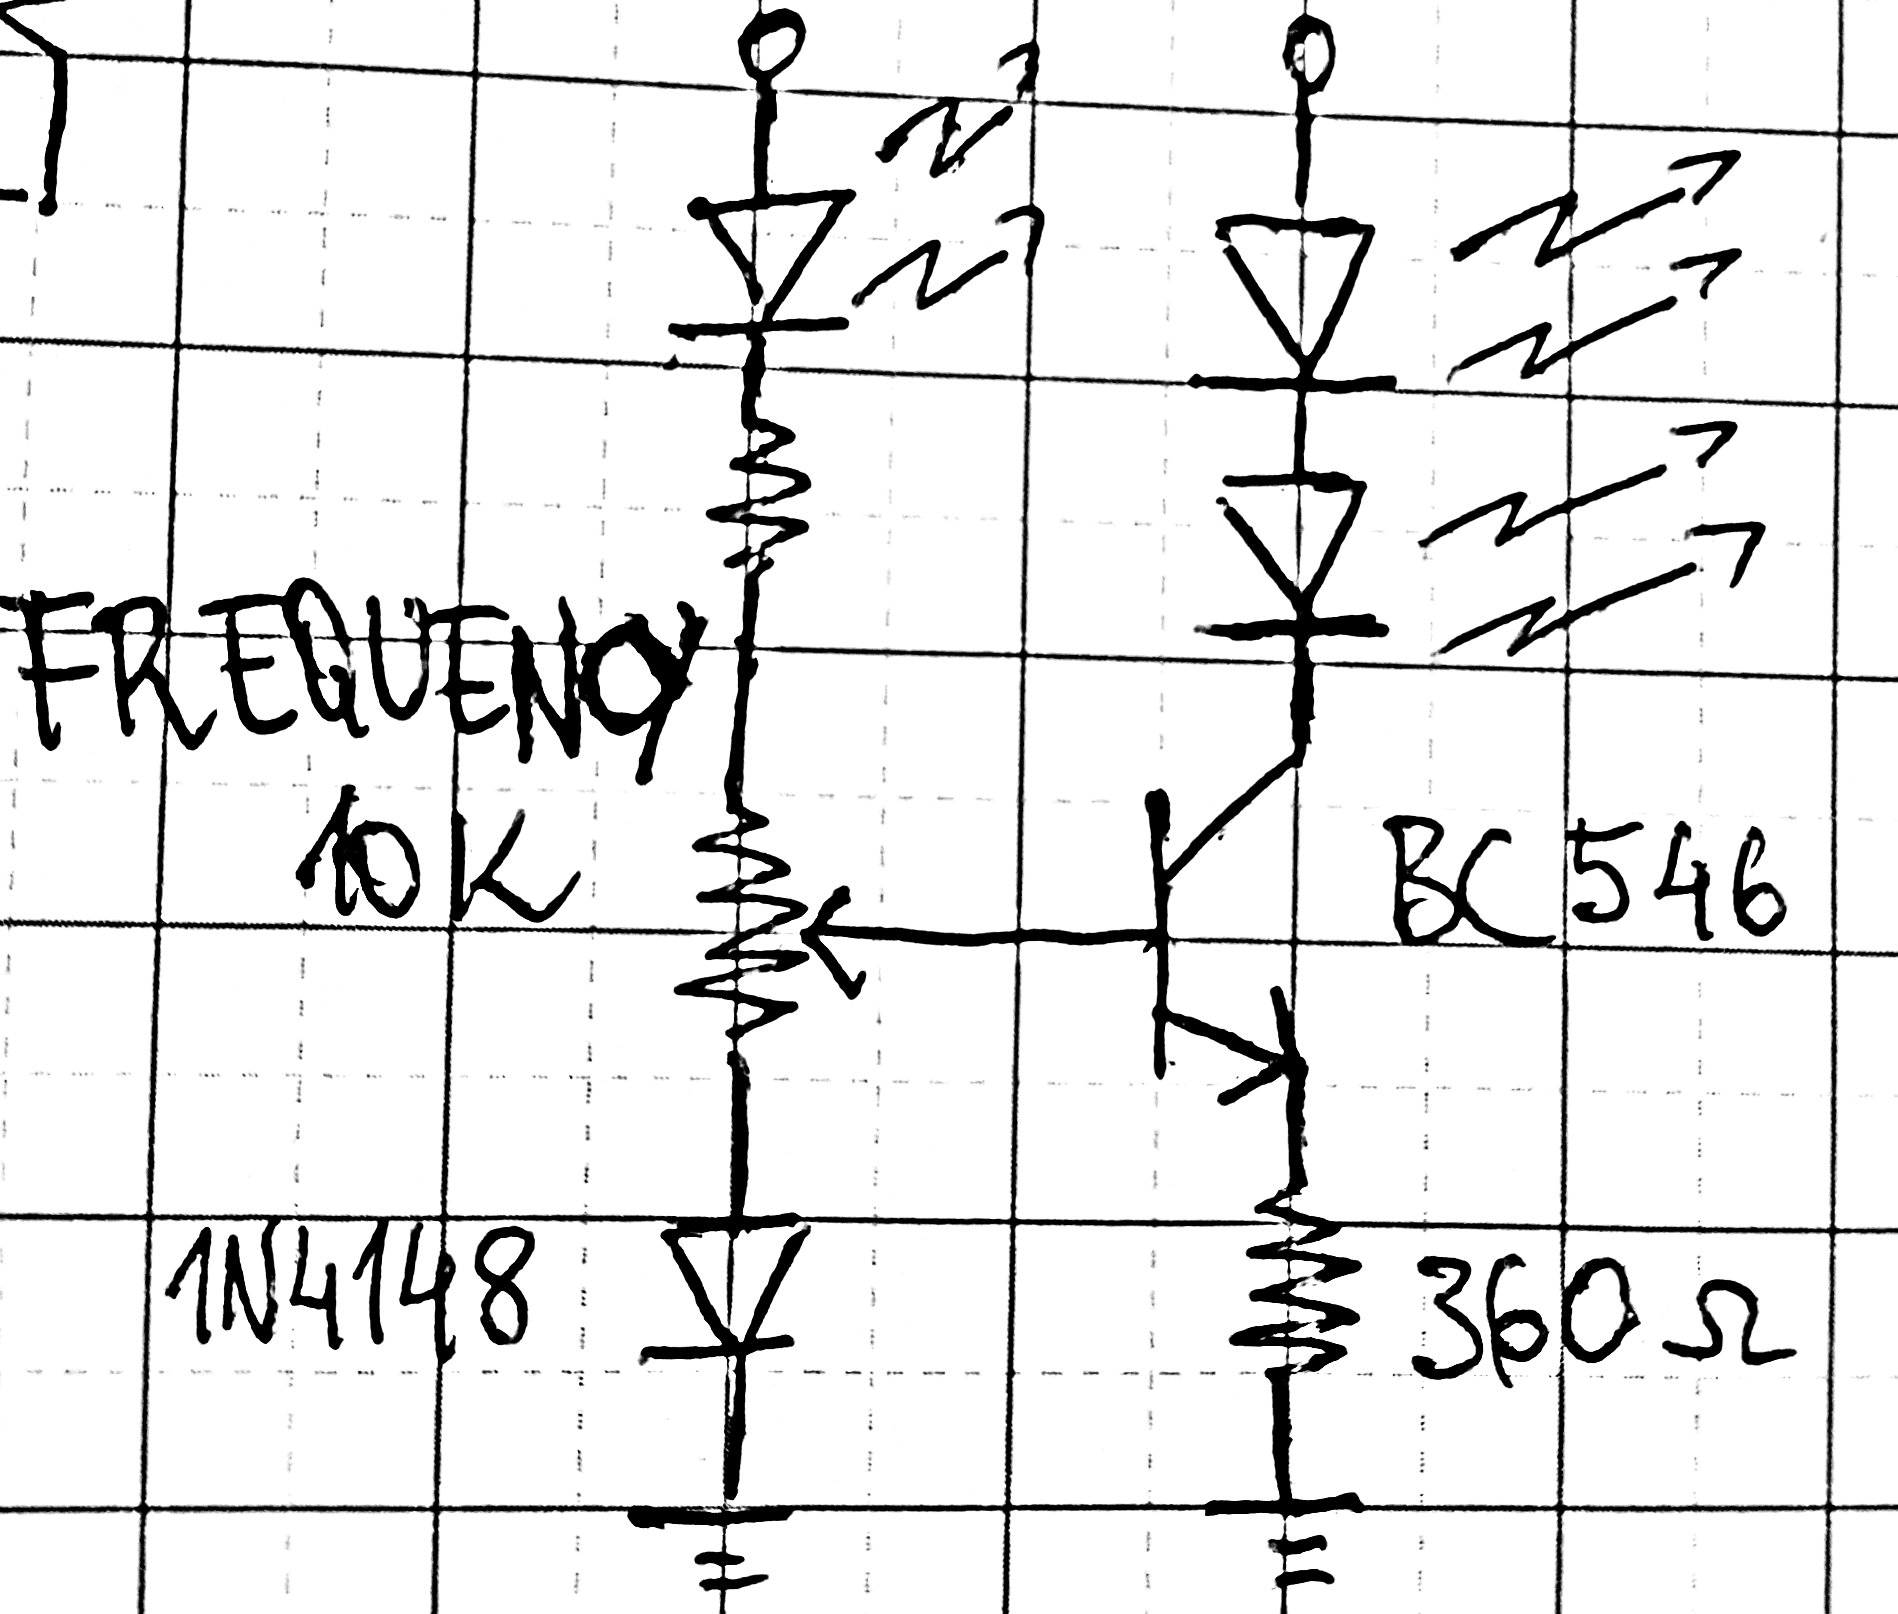 FREQUENCY
10K
BC546
1N4148
360Ω